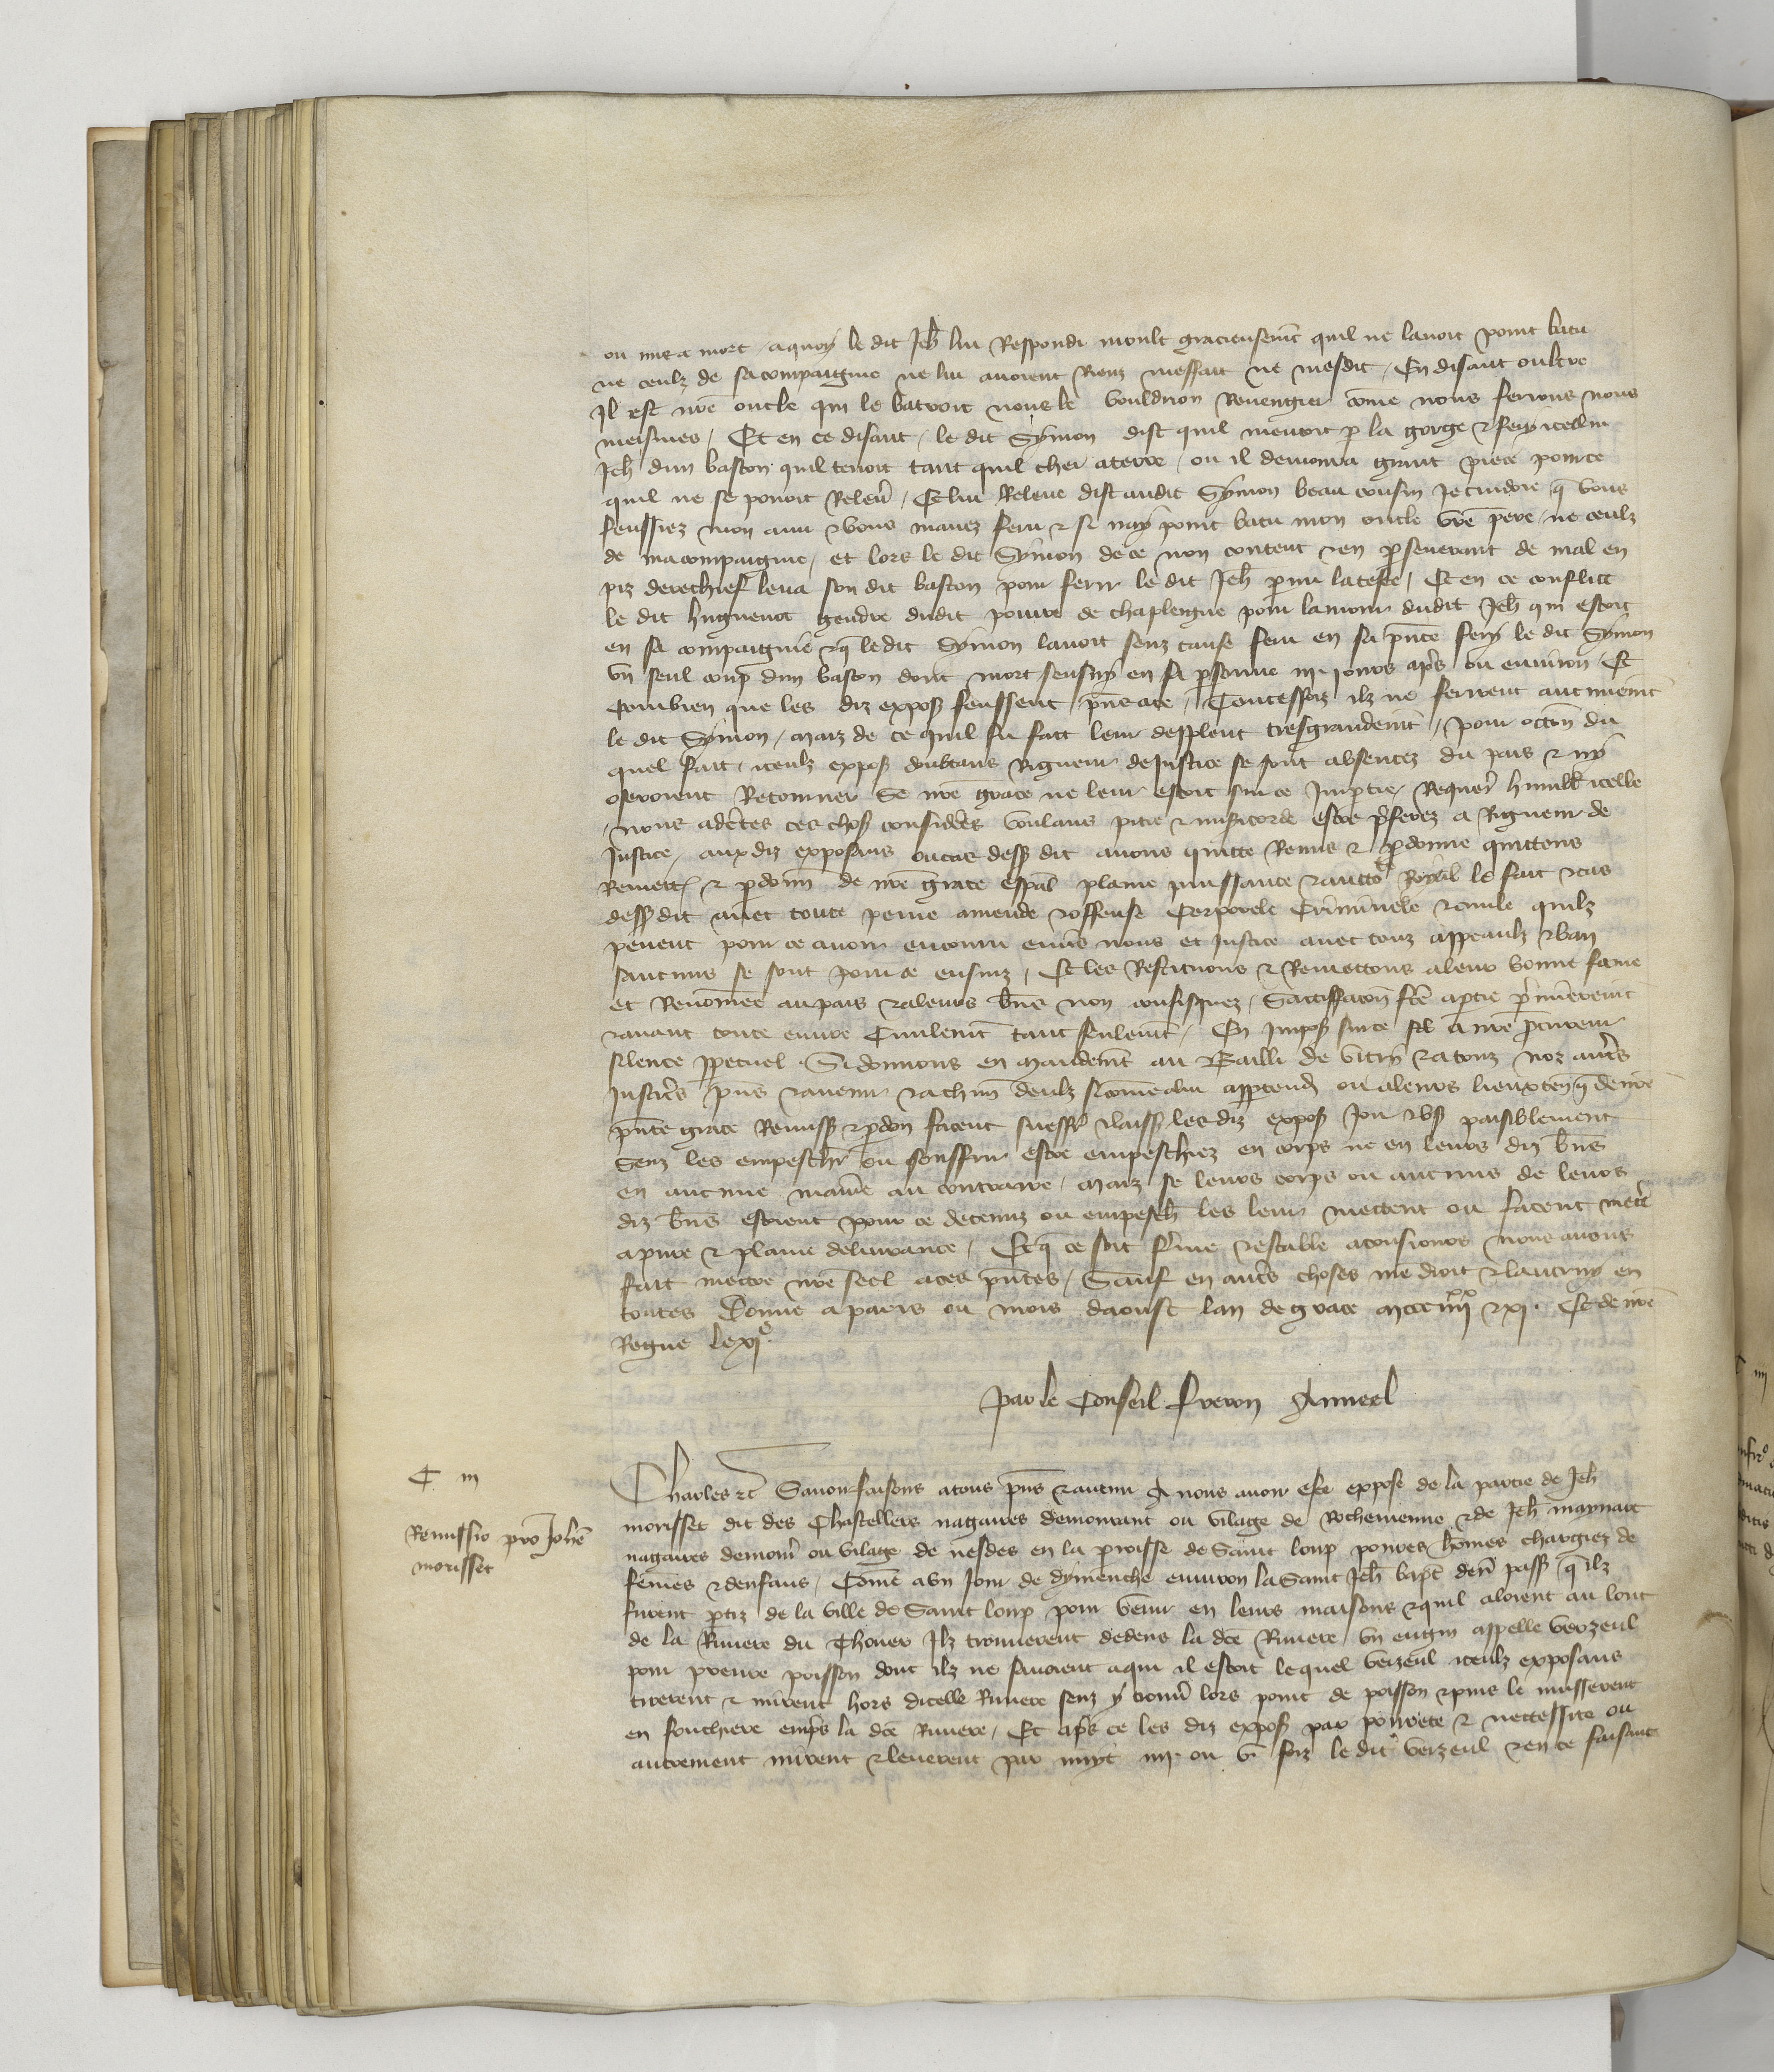 ou mis a mort / a quoy le dit Jeh̄ lui Respondi moult gracieusemēt quil ne lavoit point batu
ne ceulz de sa compaignie ne lui avoient Riens meffait ne mesdit / En disant oultre
Il est nr̄e oncle qui le batroit nous le vouldrion Revengier cōme nous ferions nous
meismes / Et en ce disant / le dit Symon dist quil mentoit p la gorge & fery icellui
Jeh̄ dun baston quil tenoit tant quil chei a terre / ou il demoura grant piece pour ce
quil ne se povoit Relev̄ / Et lui Releve dist audit Symon beau cousin Je cuidoie q̄ vous
feussiez mon ami & vous mavez feru & si nay point batu mon oncle vr̄e pere / ne ceulz
de ma compaignie / et lors le dit Symon de ce non content & en pseverant de mal en
piz derechief leva son dit baston pour ferir le dit Jeh̄ pmi la teste / Et en ce conflict
le dit huguenot gendre dudit poivre de chaplengne pour lamour dudit Jeh̄ qui estoit
en sa compaignie & q̄ le dit Symon lavoit senz cause feru en sa pn̄ce fery le dit Symon
un seul coup dun baston dont mort sensuy en sa psonne iij jours ap̄s ou environ / Et
Combien que les diz expos feussent pn̄s a ce / Toutesfoiz ilz ne ferirent aucunemēt
le dit Symon / maiz de ce quil fu fait leur despleut tresgrandemēt / pour occōn du
quel fait / iceulz expos doubtans Rigueur de Justice se sont absentez du pais & ny
oseroient Retourner Se nr̄e grace ne leur estoit sur ce Imptie / Requer̄ humblē icelle
/ Nous adēcertes ces chos considers voulans pitie & misicorde estre p̄ferez a Rigueur de
Justice / aux diz exposans ou cas dess dit avons quicte Remis & pdonne quittons
Remett & pdonn̄ de nr̄e grace espāl plaine puissance & auctō Royal le fait & cas
dess dit avec toute peine amende & offense Corporele Criminele & civile quilz
pevent pour ce avoir encouru envs nous et Justice avec touz appeaulz & ban
saucuns se sont pour ce ensuiz / Et les Restituons & Remettons a leur bonne fame
et Renōmee au pais & a leurs bn̄s non confisquez / Sattiffacōn fcē a ptie p̄mieremt
& avant toute euvre Civilemt tant seulemt / En Impos sur ce sil a nr̄e pcureur
silence ppetuel / Si donnons en mandemt au Bailli de vitry & a touz noz autr̄s
Justicrs pn̄s & avenir & a chun deulz si cōme a lui apptendr̄ ou a leurs lieuxten q̄ de nr̄e
pn̄te grace Remiss & pdon facent sueffr̄ & laiss les diz expos Joir & us paisiblement
Senz les empeschr̄ ou souffrir estre empeschiez en corps ne en leurs diz bn̄s
en aucune manie au contraire / maiz se leurs corps ou aucuns de leurs
diz bn̄s estoient pour ce detenuz ou empesch̄ les leur mettent ou facent metr̄
a pure & plaine delivrance / Et q̄ ce soit ferme & estable a tousjours nous avons
fait mettre nr̄e seel a ces pn̄tes / Sauf en autr̄s choses nr̄e droit & lautruy en
toutes Donne a paris ou mois daoust lan de grace mccc iiijxx & xi . Et de nr̄e
Regne le xio.
Par le Conseil Freron Aunoel
C iij
Remissio pro Johe
morisset
Charles &c Savoir faisons a tous pn̄s & avenir A nous avoir este expose de la partie de Jeh̄
morisset dit des Chastelliers nagaires demourant ou vilage de Rochemenue & de Jeh̄ maynart
nagaires demour̄ ou vilage de nesdes en la parroisse de Saint loup povres hōmes chargiez de
fēmes & denfans / Cōme a un Jour de dymenche environ la Saint Jeh̄ bapt derr̄ pass q̄ ilz
furent ptiz de la ville de Saint loup pour venir en leurs maisons & quil aloient au lont
de la Riviere du Thouer Ilz trouverent dedens la dcē Riviere / un engin appelle verzeul
pour prenre poisson dont ilz ne savoient a qui il estoit lequel verzeul iceulz exposans
tirerent & mirent hors dicelle Riviere senz y trouv̄ lors point de poisson & puis le musserent
en fouchiere emp̄s la dcē Riviere / Et ap̄s ce les diz expos par povrete & neccessite ou
autrement mirent & leverent par nuyt iiij ou v foiz le dit verzeul & en ce faisant